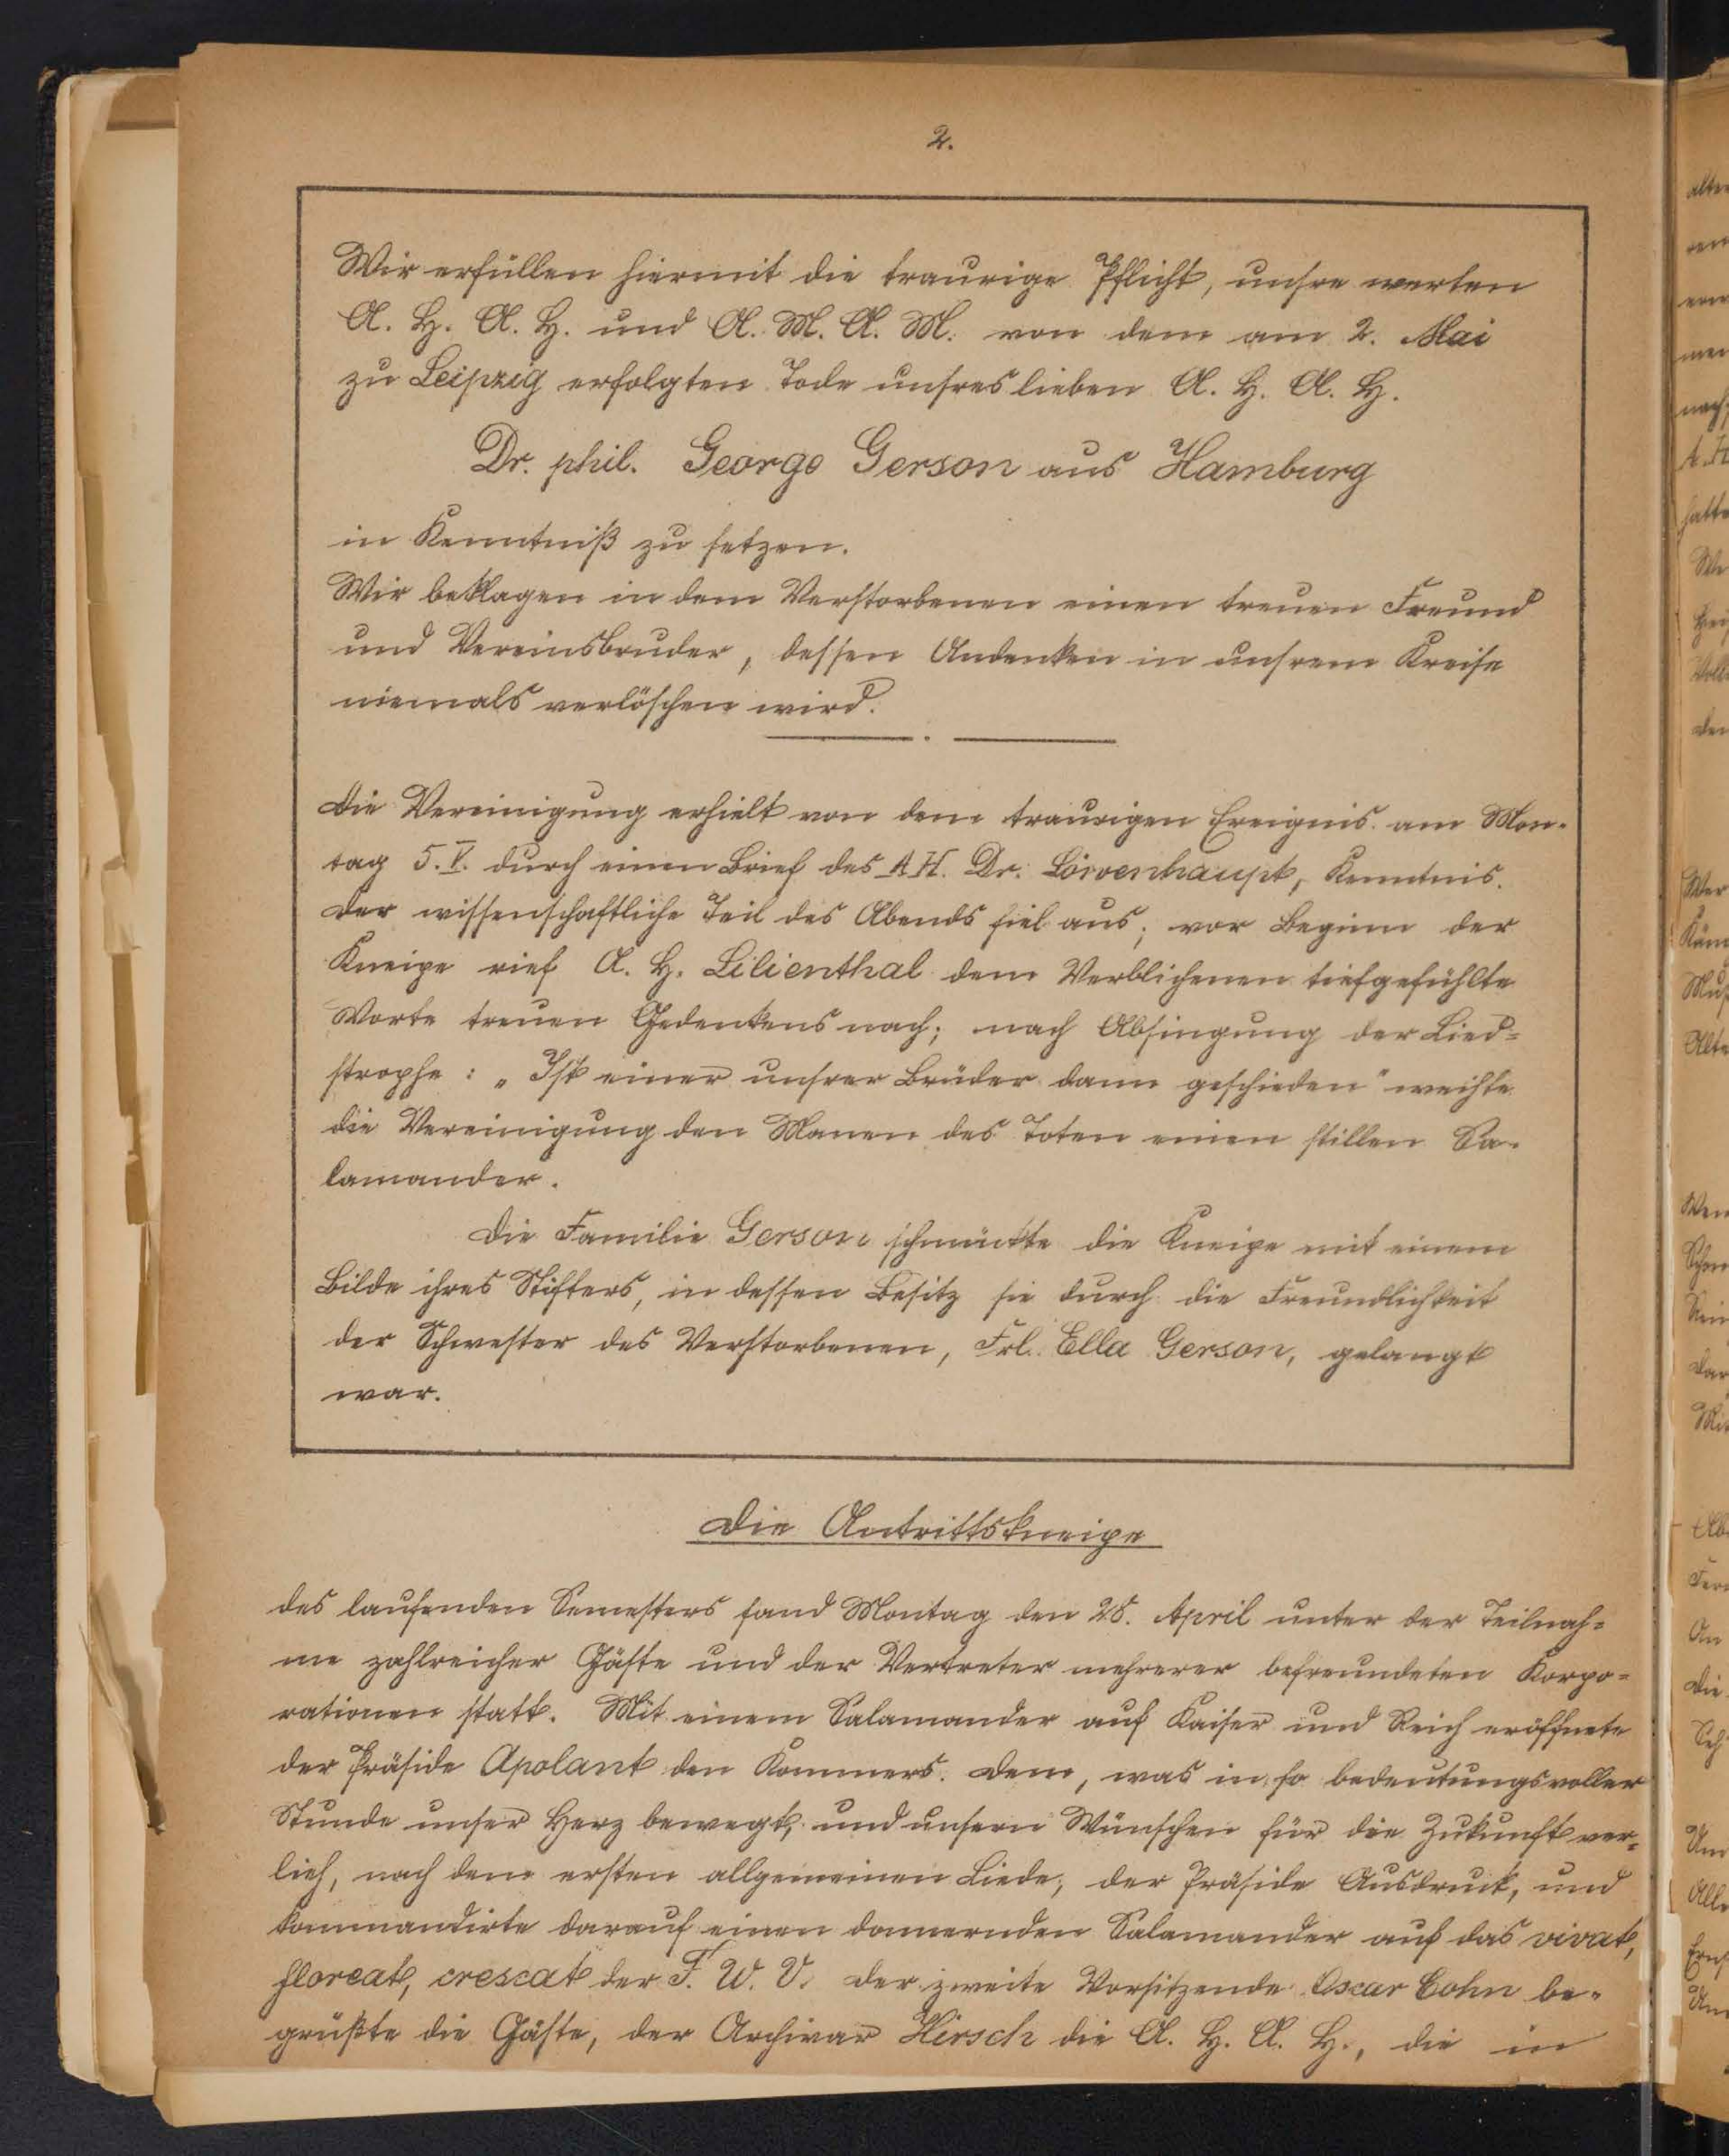 2.
Wir erfüllen hiermit die traurige Pflicht, unsre werten
A. H. A. H. und A. M. A. M. von dem am 2. Mai
zu Leipzig erfolgten Tode unsres lieben A. H. A. H.
Dr. phil. George Gerson aus Hamburg
in Kenntniß zu setzen.
Wir beklagen in dem Verstorbenen einen treuen Freund
und Vereinsbruder, dessen Andenken in unsrem Kreise
niemals verlöschen wird.
Die Vereinigung erhielt von dem traurigen Ereignis am Mon-
tag 5. V. durch einen Brief des A H. Dr. Löwenhaupt, Kenntnis.
Der wissenschaftliche Teil des Abends fiel aus; vor Beginn der
Kneipe rief A. H. Lilienthal dem Verblichenen tiefgefühlte
Worte treuen Gedenkens nach; nach Absingung der Lied-
strophe: „Ist einer unsrer Brüder dann geschieden" weihte
die Vereinigung den Manen des Toten einen stillen Sa-
lamander.
Die Familie Gerson schmückte die Kneipe mit einem
Bilde ihres Stifters, in dessen Besitz sie durch die Freundlichkeit
der Schwester des Verstorbenen, Frl. Ella Gerson, gelangt
war.
Die Antrittskneipe
des laufenden Semesters fand Montag den 28. April unter der Teilnah-
me zahlreicher Gäste und der Vertreter mehrerer befreundeten Korpo-
rationen statt. Mit einem Salamander auf Kaiser und Reich eröffnete
der Präside Apolant den Kommers. Dem, was in so bedeutungsvoller
Stunde unser Herz bewegt, und unsern Wünschen für die Zukunft ver-
lieh, nach dem ersten allgemeinen Liede, der Präside Ausdruck, und
kommandirte darauf einen donnernden Salamander auf das vivat,
floreat, crescat der F. W. V. Der zweite Vorsitzende Oscar Cohn be-
grüßte die Gäste, der Archivar Hirsch die A. H. A. H., die in